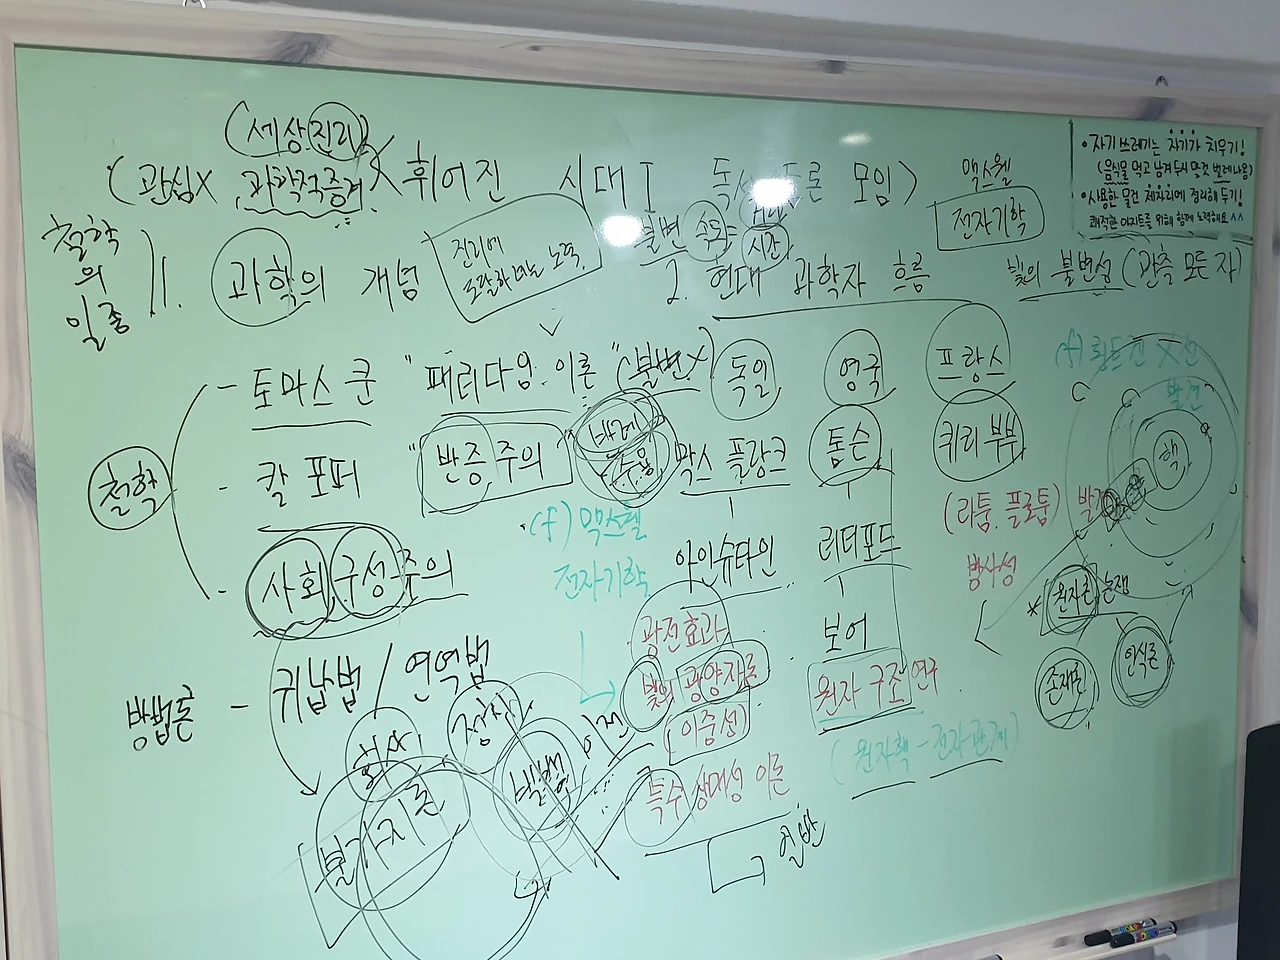 (세상진리)
(관심X 과학적증거X 휘어진 시대 I 독서 토론 모임>
맥스웰
전자기학
• 자기 쓰레기는 자기가 치우기!
(음식물 먹고 남겨두시 말것 벌레나옴)
• 사용한 물건 제자리에 정리해 두기!
쾌적한 아지트를 위해 함께 노력해요 ^^
철학
의
일종
1. 과학의 개념
진리에
도달하려는 노력.
불변 속도=
시간
2. 현대 과학자 흐름
빛의 불변성 (관측 모든 자)
철학
- 토마스 쿤 "패러다임 이론" (불변X)
- 칼 포퍼 "반증주의"
- 사회구성주의
방법론 - 귀납법 / 연역법
독일
영국
프랑스
막스 플랑크
톰슨
퀴리 부부
(f) 맥스웰
전자기학
아인슈타인
러더포드
보어
(라듐. 플로튬) 발견
방사성
(f) 뢴트겐 X선
발견
핵
광전효과
빛의 광양자론
(이중성)
특수상대성 이론
일반
원자 구조 연구
(원자핵 - 전자 관계)
* 원자론 논쟁
존재론
인식론
이전